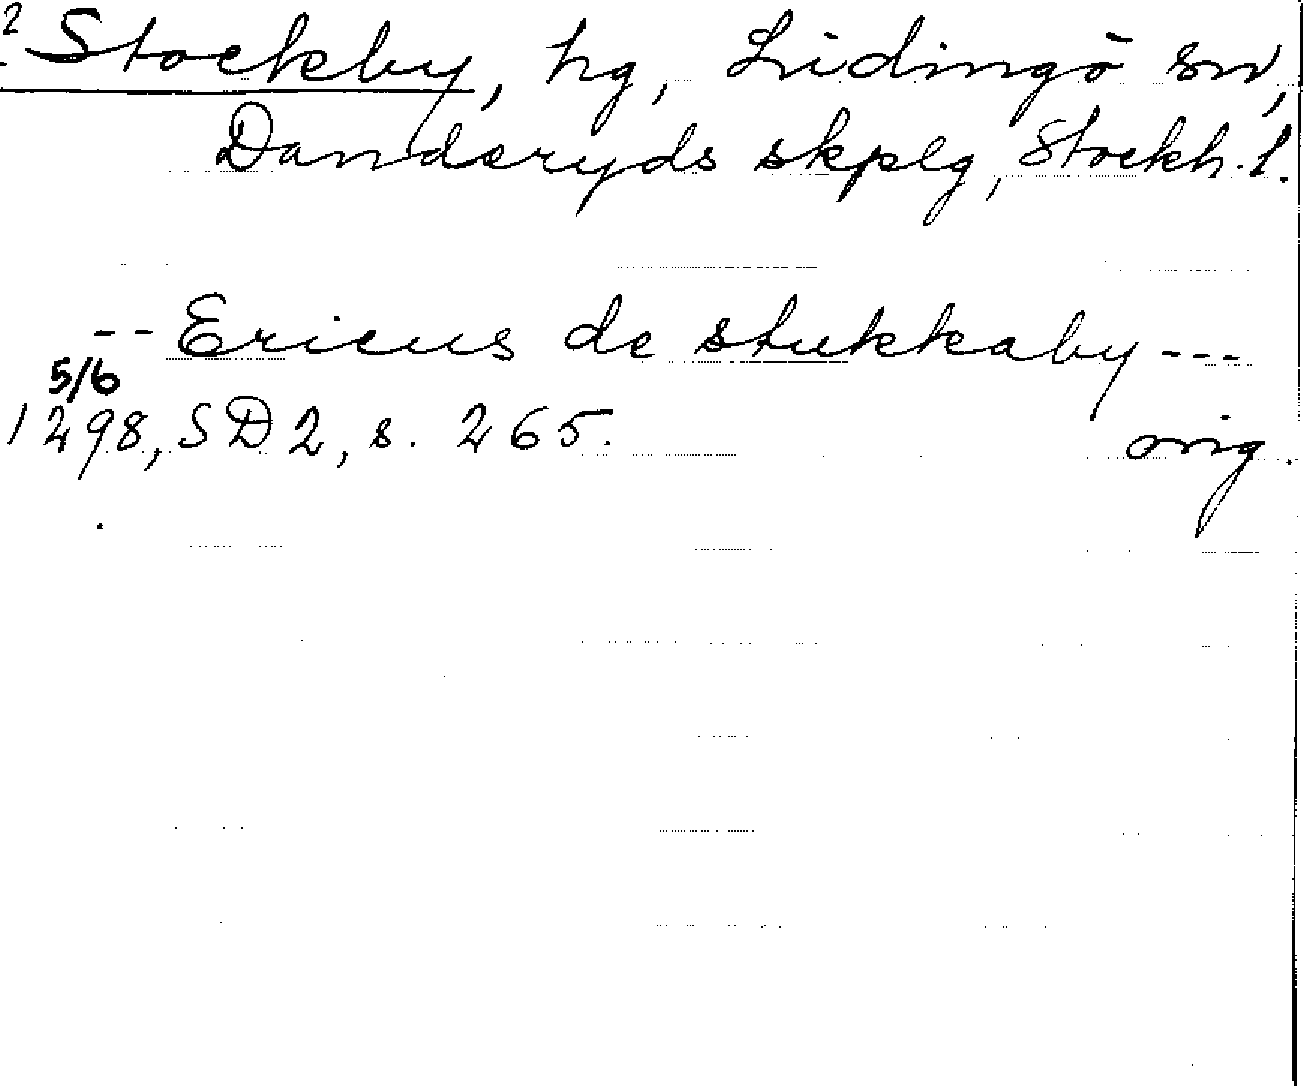 2 Stockby, hg, Lidingö sn,
Danderyds skplg, Stockh. l.
-- Ericus de stukkaby ---
5/6
1298, SD 2, s. 265. orig.